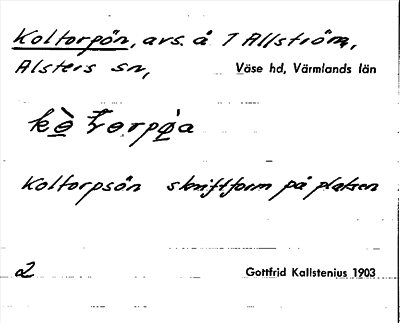 Koltorpön, avs. å 7 Allström,
Alsters sn, Väse hd, Värmlands län
Koltorpsön skriftform på platsen
2 Gottfrid Kallstenius 1903